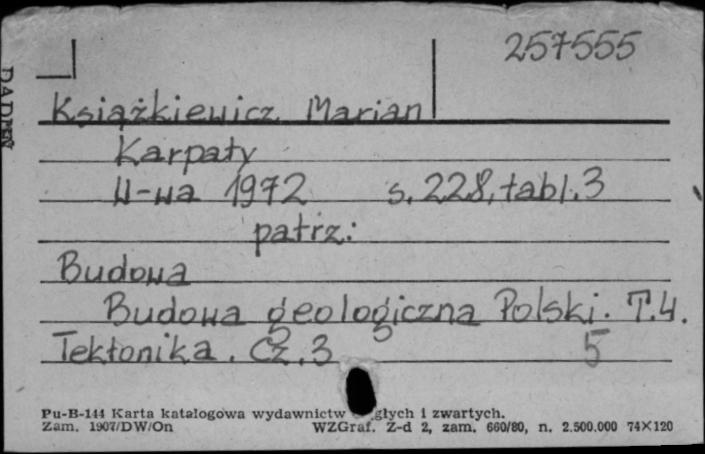 257555
Książkiewicz Marian
Karpaty
W-wa 1972 s. 228, tabl. 3
patrz:
Budowa
Budowa geologiczna Polski. T. 4.
Tektonika. Cz. 3 5
Pu-B-144 Karta katalogowa wydawnictw głych i zwartych.
Zam. 1907/DW/On WZGraf. Z-d 2, zam. 660/80, n. 2.500.000 74X120